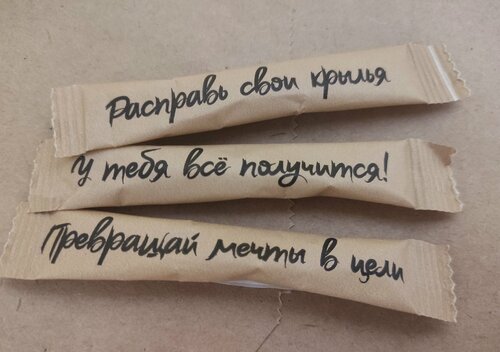 Расправь свои крылья
У тебя всё получится!
Превращай мечты в цели